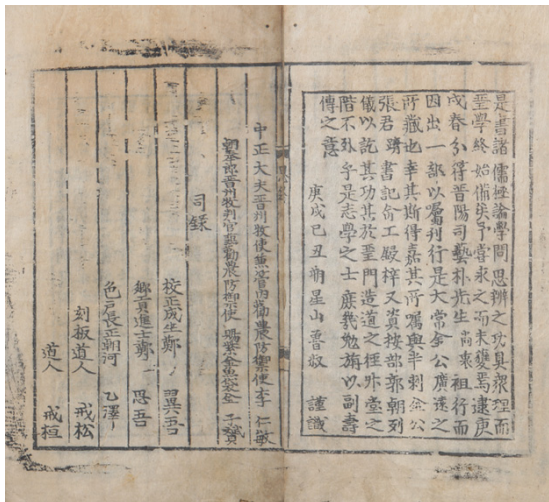 是書諸儒極論學問思辨之功具衆理而
聖學終始備矣予嘗求之而未獲焉逮庚
戌春分得晉陽司藝朴先生尚衷祖行而
因出一部以囑刊行是大常金公廣遠之
所藏也幸其斯得嘉其所囑與半刺金公
張君書記命工鋟梓又資按部郭朝列
儀以訖其功其於聖門造道之極升堂之
階不外乎是志學之士庶幾勉旃以副壽
傳之意
庚戌己丑朔星山晉敬 謹識
中正大夫晉州牧使兼管內勸農防禦使李 仁敏
朝奉郎晉州牧判官兼勸農防禦使 賜紫金魚袋金 子贇
司錄
校正成生鄭 翼吾
鄉貢進士鄭 思吾
色戶長正朝河 乙澤
刻板道人 戒松
道人 戒桓